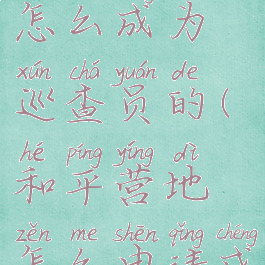 怎么成为
xún chá yuán de
巡查员的(
hé píng yíng dì
和平营地
zěn me shēn qǐng chéng
怎么申请成